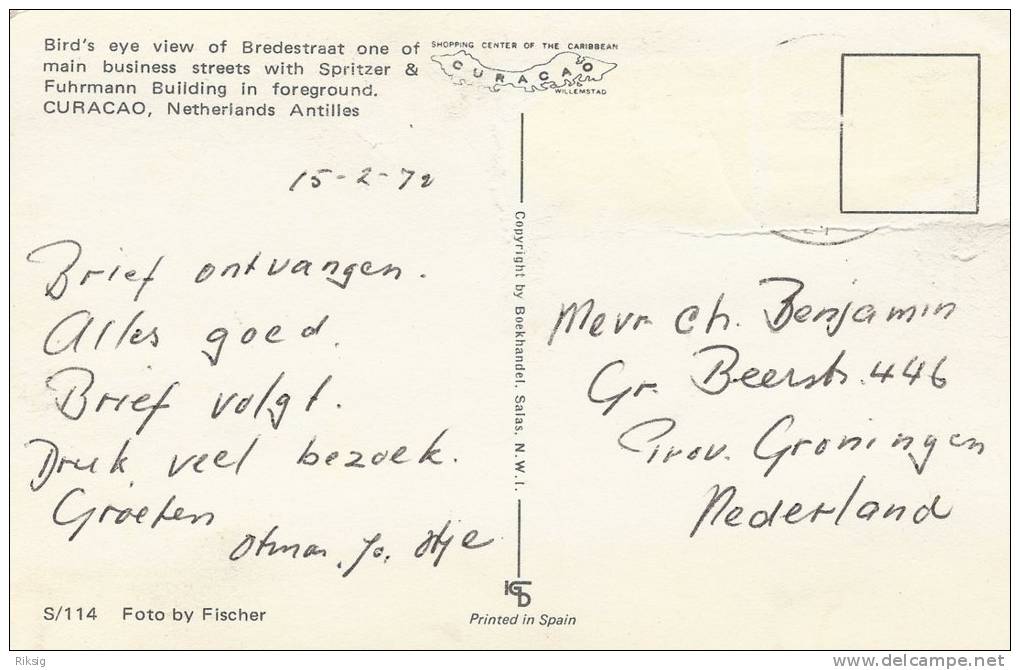 Bird's eye view of Bredestraat one of
main business streets with Spritzer &
Fuhrmann Building in foreground.
CURACAO, Netherlands Antilles
SHOPPING CENTER OF THE CARIBBEAN
CURACAO
WILLEMSTAD
15-2-72
Brief ontvangen.
Alles goed.
Brief volgt.
Druk veel bezoek.
Groeten
Otmar, Jo,
Copyright by Boekhandel. Salas. N.W.I.
Mevr. Ch. Benjamin
Gr. Beerstr. 446
Prov. Groningen
Nederland
S/114 Foto by Fischer
Printed in Spain
Riksig
www.delcampe.net